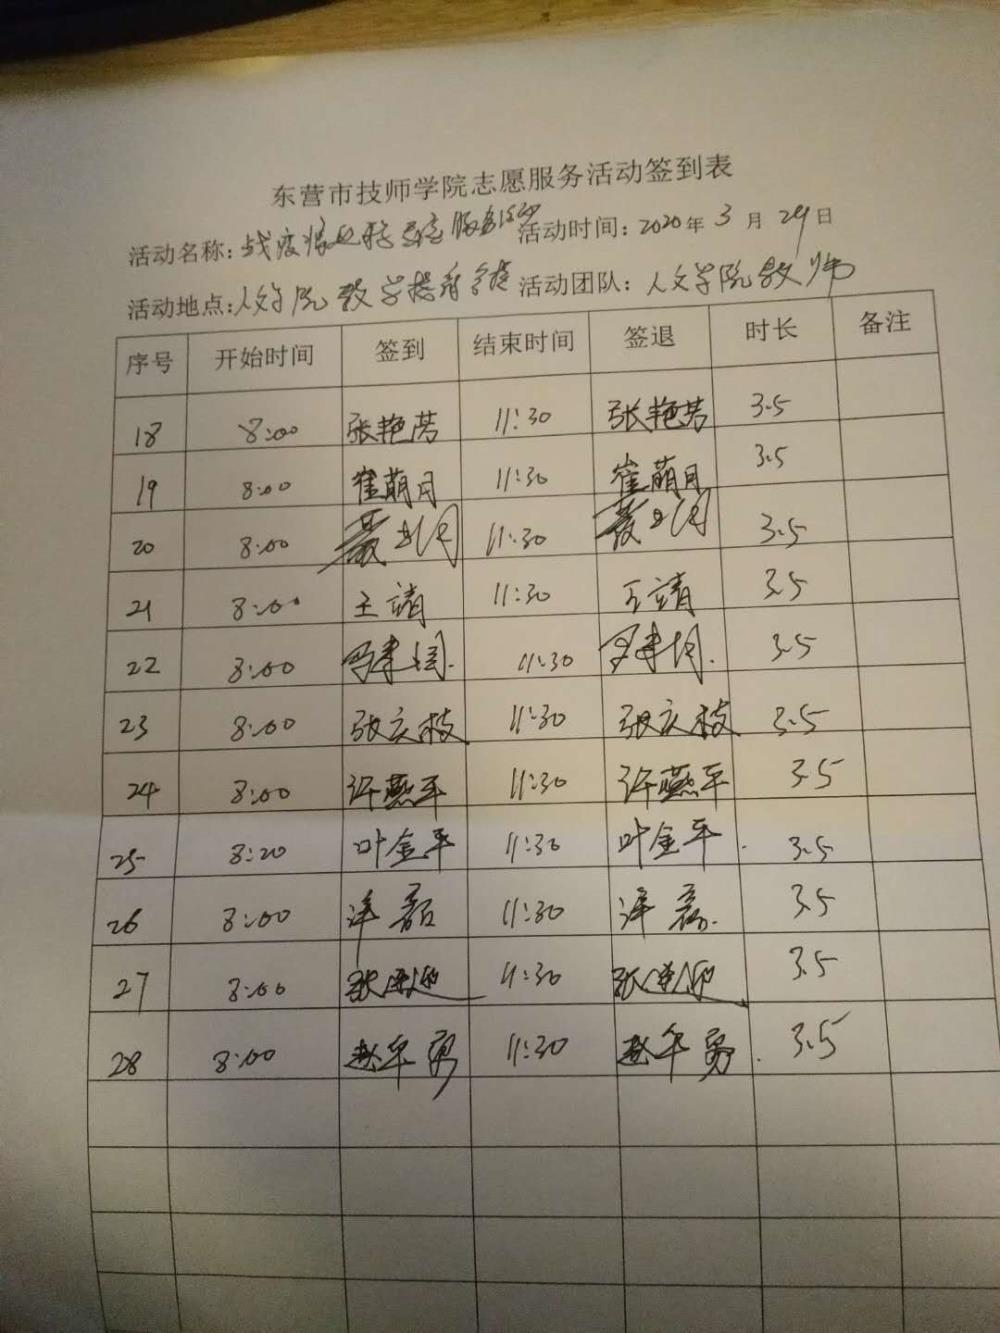 东营市技师学院志愿服务活动签到表
活动名称：战疫 服务活动 活动时间：2020年3月29日
活动地点：人文学院教学 活动团队：人文学院教师
序号 开始时间 签到 结束时间 签退 时长 备注
18 8:00 张艳芳 11:30 张艳芳 3.5
19 8:00 崔萌月 11:30 崔萌月 3.5
20 8:00 11:30 3.5
21 8:00 王靖 11:30 王靖 3.5
22 8:00 11:30 3.5
23 8:00 张庆枝 11:30 张庆枝 3.5
24 8:00 许燕平 11:30 许燕平 3.5
25 8:20 叶金平 11:30 叶金平 3.5
26 8:00 11:30 3.5
27 8:00 张 11:30 张 3.5
28 8:00 赵 勇 11:30 赵 勇 3.5